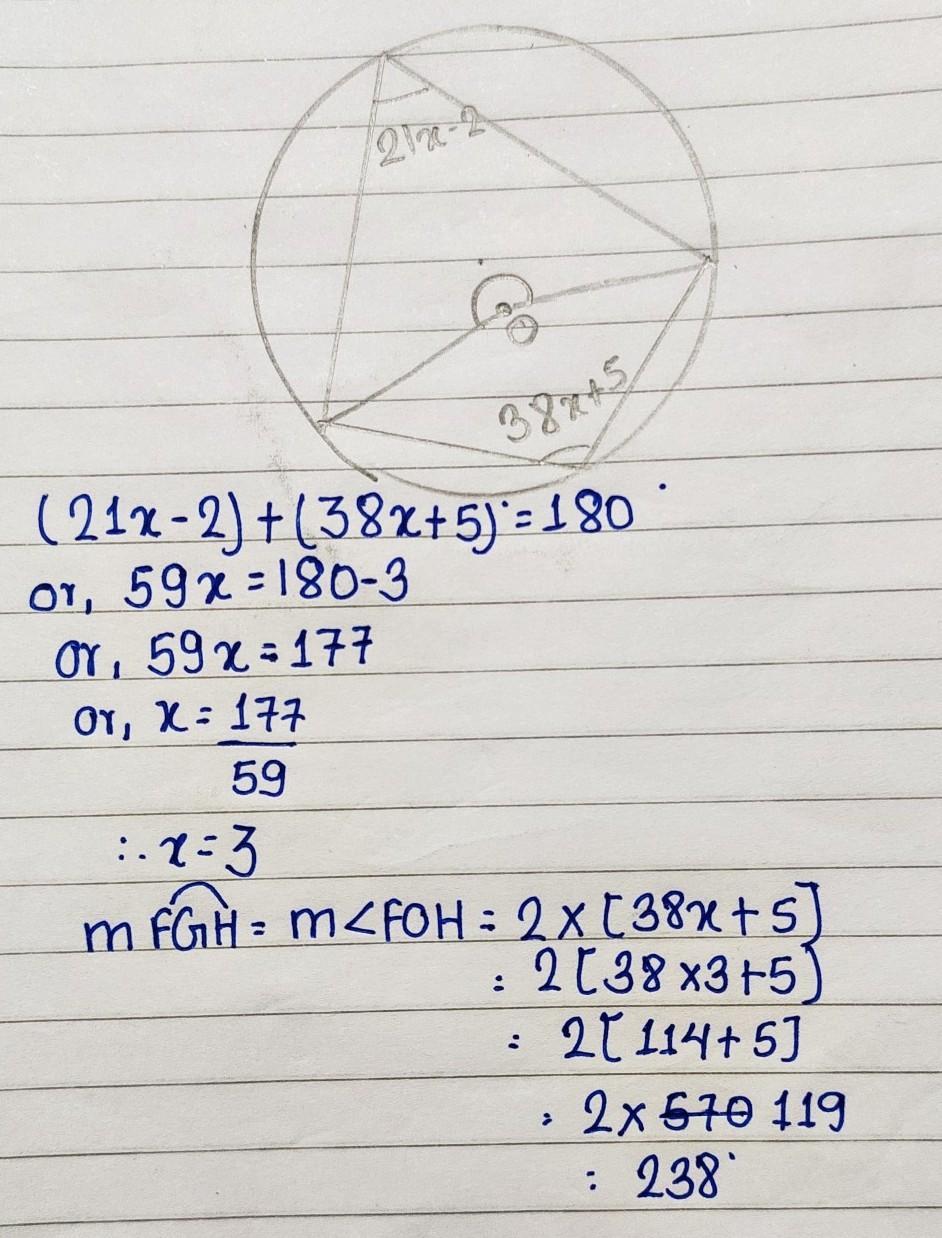 21x-2
O
38x+5
(21x-2)+(38x+5)°=180°
or, 59x=180-3
or, 59x=177
or, x=177/59
∴ x=3
m FGH = m<FOH = 2×[38x+5]
= 2[38×3+5]
= 2[114+5]
= 2×570 119
= 238°